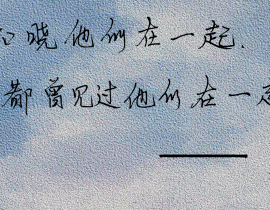 晓他们在一起.
都曾见过他们在一起